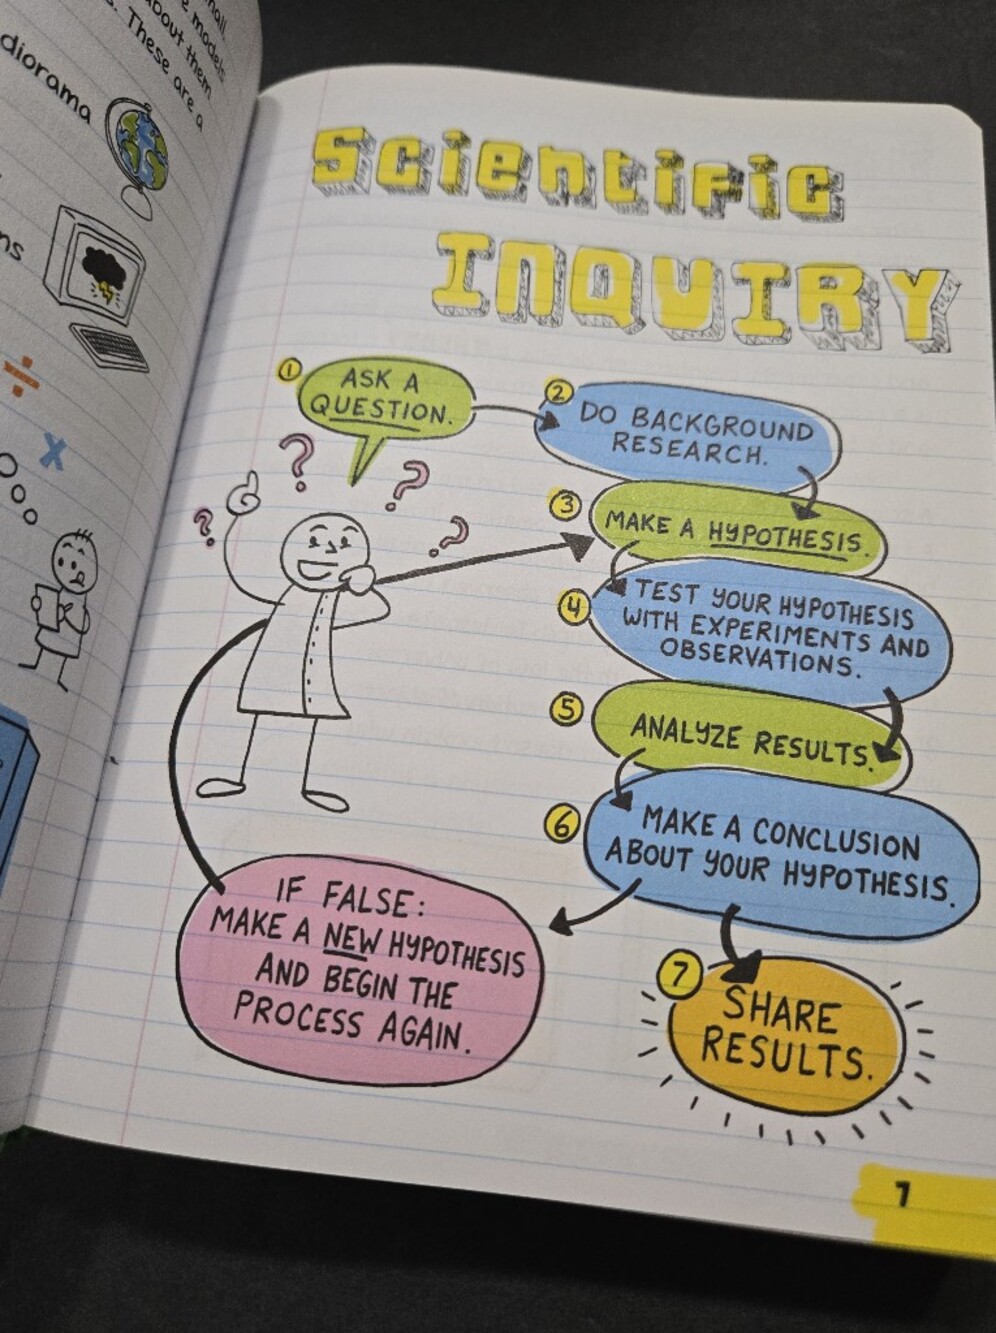 mall
e models
about them
. These are a
diorama
ns
÷
x
Scientific
INQUIRY
1
ASK A
QUESTION.
2
DO BACKGROUND
RESEARCH.
? ? ? ?
3
MAKE A HYPOTHESIS.
4
TEST YOUR HYPOTHESIS
WITH EXPERIMENTS AND
OBSERVATIONS.
5
ANALYZE RESULTS.
6
MAKE A CONCLUSION
ABOUT YOUR HYPOTHESIS.
IF FALSE:
MAKE A NEW HYPOTHESIS
AND BEGIN THE
PROCESS AGAIN.
7
SHARE
RESULTS.
7